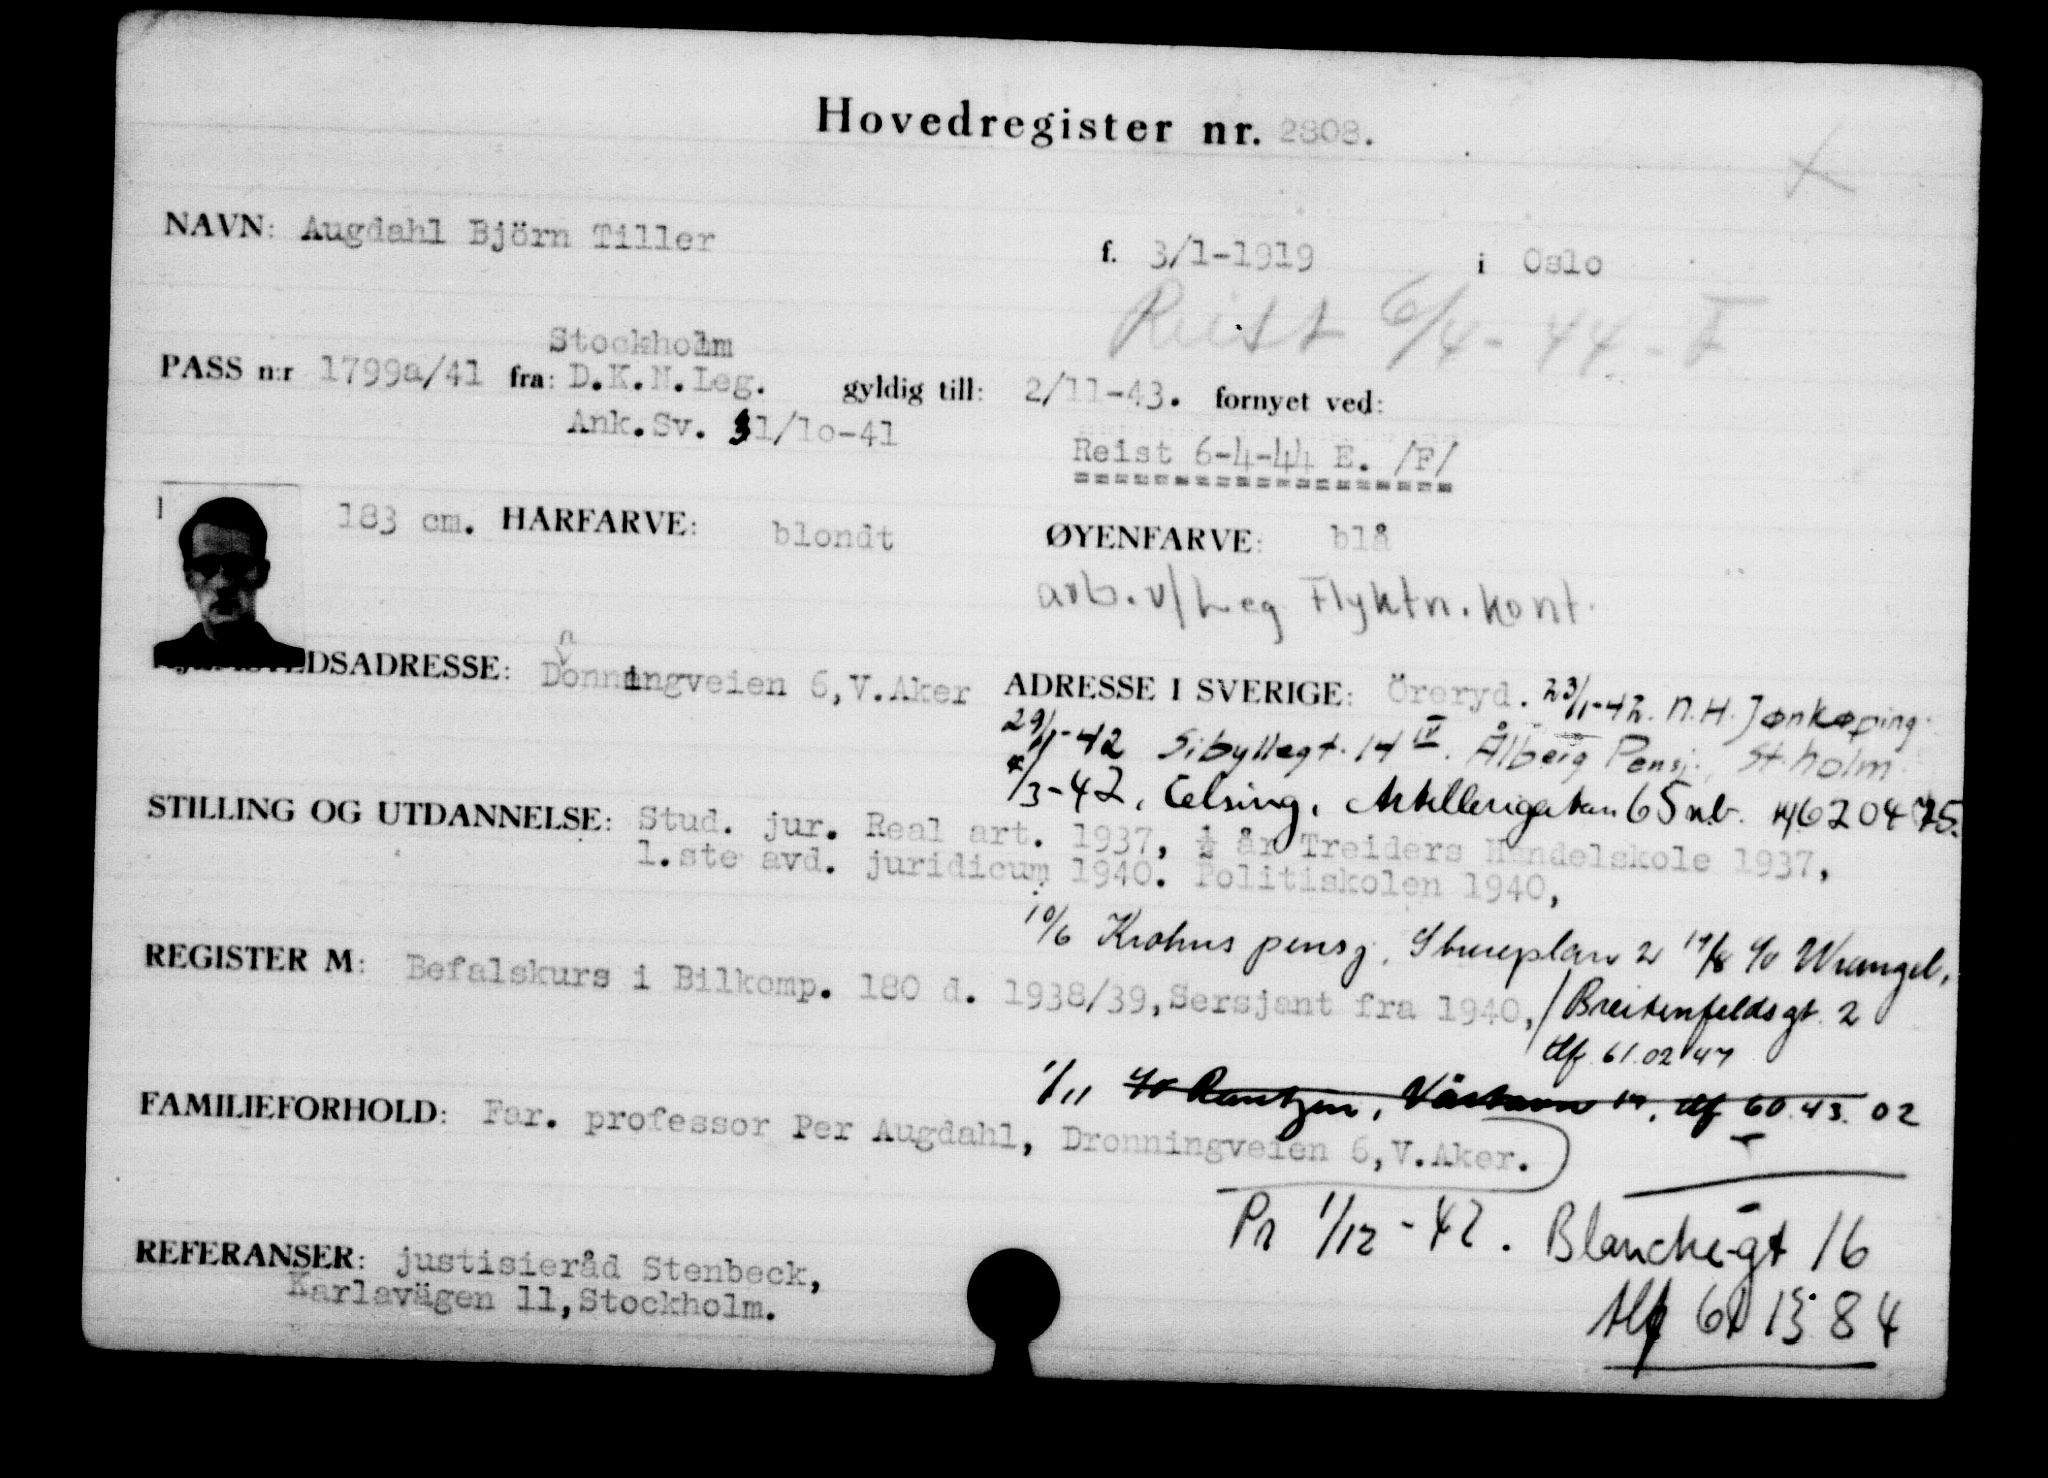 Hovedregister nr. 2808.
NAVN: Augdahl Björn Tiller f. 3/1-1919 i Oslo
Reist 6/4-44-F
Stockholm
PASS n:r 1799a/41 fra: D.K.N.Leg. gyldig till: 2/11-43. fornyet ved:
Ank.Sv. 31/10-41
Reist 6-4-44 E. /F/
183 cm. HÅRFARVE: blondt ØYENFARVE: blå
arb. v/Leg Flyktn. kont.
DSADRESSE: Donningveien 6, V.Aker ADRESSE I SVERIGE: Öreryd. 23/1-42. N.H. Jønkøping.
29/1-42 Sibyllegt. 14 IV. Ålberg Pensj., St.holm
4/3-42, Celsing, Artillerigatan 65 n.b. 620475.
STILLING OG UTDANNELSE: Stud. jur. Real art. 1937, ½ år Treiders Handelskole 1937,
1.ste avd. juridicum 1940. Politiskolen 1940,
10/6 Krohns pensj. Stureplan 2 c/o Wrangel,
REGISTER M: Befalskurs i Bilkomp. 180 d. 1938/39, Sersjant fra 1940, / Breitenfeldsgt. 2
tlf. 61.02 47
1/11 c/o tlf 60.43.02
FAMILIEFORHOLD: Far. professor Per Augdahl, Dronningveien 6, V.Aker.
Pr 1/12-42. Blanchegt 16
REFERANSER: justisieråd Stenbeck,
Karlavägen 11, Stockholm.
tlf 61 15 84